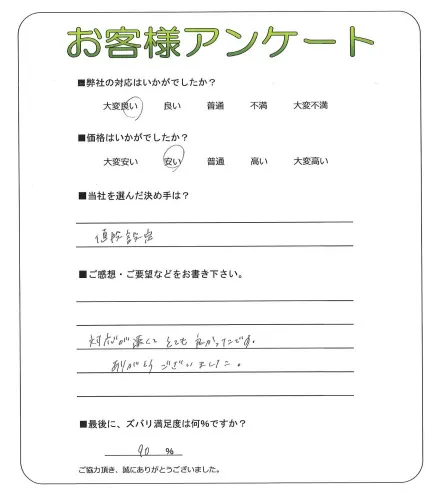 お客様アンケート
■弊社の対応はいかがでしたか？
大変良い 良い 普通 不満 大変不満
■価格はいかがでしたか？
大変安い 安い 普通 高い 大変高い
■当社を選んだ決め手は？
価格設定
■ご感想・ご要望などをお書き下さい。
対応が速くて とても良かったです。
ありがとうございました。
■最後に、ズバリ満足度は何％ですか？
90 ％
ご協力頂き、誠にありがとうございました。